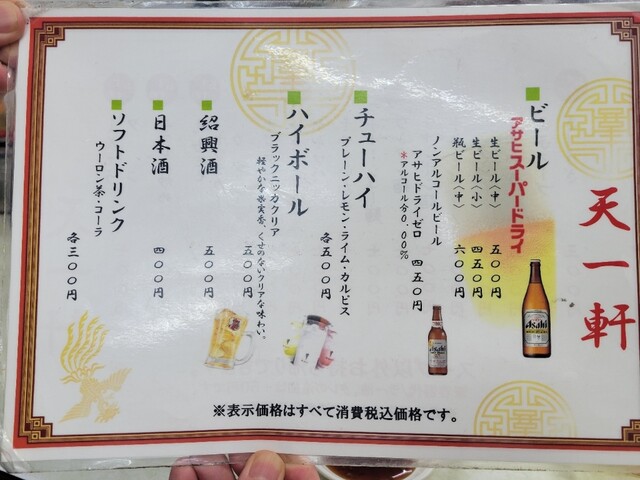 天一軒
ビール
アサヒスーパードライ
生ビール〈中〉 五〇〇円
生ビール〈小〉 四五〇円
瓶ビール〈中〉 六〇〇円
ノンアルコールビール
アサヒドライゼロ 四五〇円
*アルコール分0.00%
チューハイ
プレーン・レモン・ライム・カルピス
各五〇〇円
ハイボール
ブラックニッカクリア
軽やかな果実香、くせのないクリアな味わい。
五〇〇円
紹興酒 五〇〇円
日本酒 四〇〇円
ソフトドリンク
ウーロン茶・コーラ
各三〇〇円
Asahi
Asahi
※表示価格はすべて消費税込価格です。